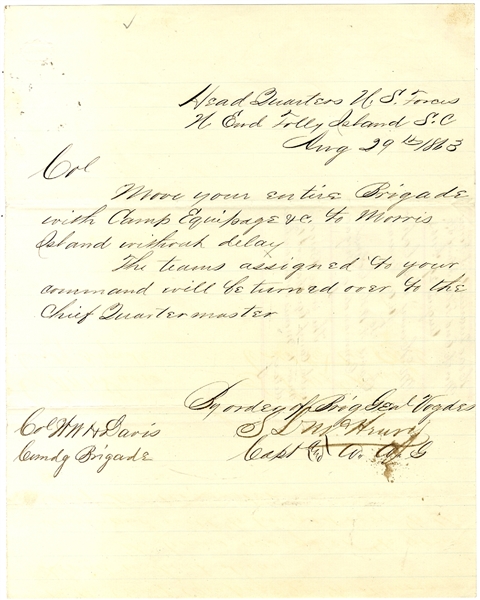 Head Quarters U. S. Forces
N End Folly Island S. C
Aug 29th 1863
Col
Move your entire Brigade
with Camp Equipage &c. to Morris
Island without delay
The teams assigned to your
command will be turned over to the
Chief Quartermaster
By order of Brig Genl Vogdes
S L McHenry
Capt & A. A. A G
Col W W H Davis
Comdg Brigade